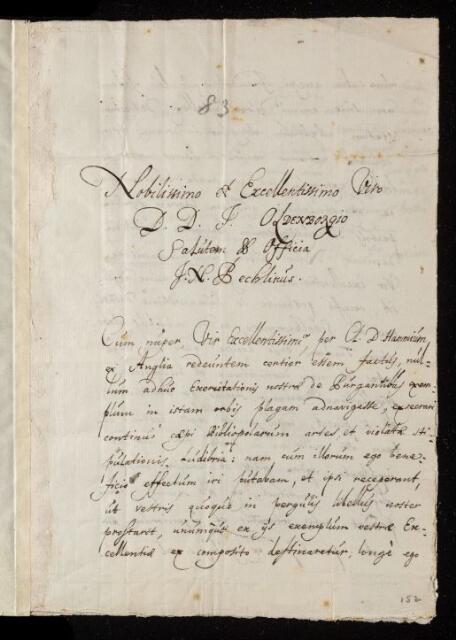 83
Nobilissimo et Excellentissimo Viro
D. D. J. OLDENBORGIO
Salutem & Officia
J. N. Pechlinus.
Cum nuper, Vir Excellentissime, per Cl. D. Hannium
ex Anglia redeuntem certior essem factus, nul-
lum adhuc Exercitationis nostræ de Purgantibus exem-
plum in istam orbis plagam adnavigasse, exsecrari
continuò cæpi Bibliopolarum artes, et violatæ sti-
pulationis ludibria: nam cum illorum ego bene-
ficio effectum iri putabam, et ipsi receperant,
ut vestris quoque in pergulis libellus noster
prostaret, unumque ex ijs exemplum vestræ Ex-
cellentiæ ex composito destinaretur, longè ego
152